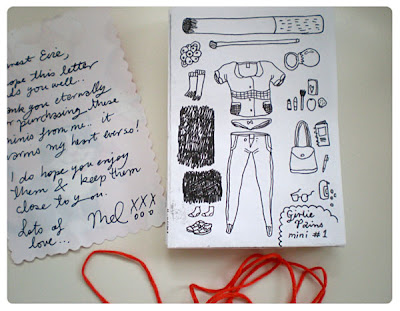 est Evie,
ope this letter
ds you well..
ank you eternally
r purchasing these
minis from me.. it
warms my heart ever so!
I do hope you enjoy
them & keep them
close to you.
Lots of
love...
Mel XXX
Girlie
Pains
mini #1